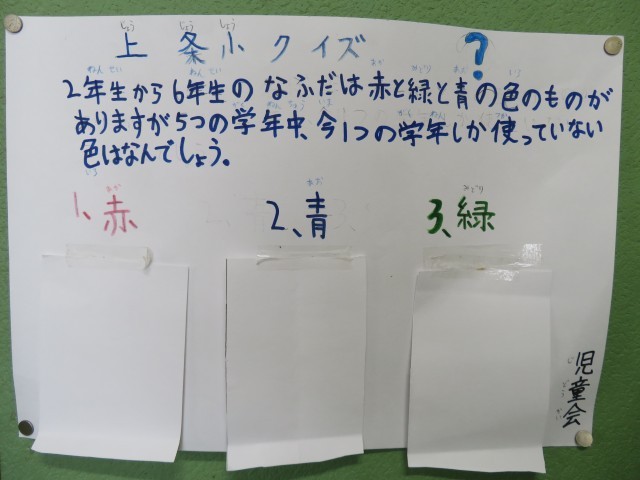 上条小クイズ ?
2年生から6年生のなふだは赤と緑と青の色のものが
ありますが5つの学年中、今1つの学年しか使っていない
色はなんでしょう。
1、赤
2、青
3、緑
児童会